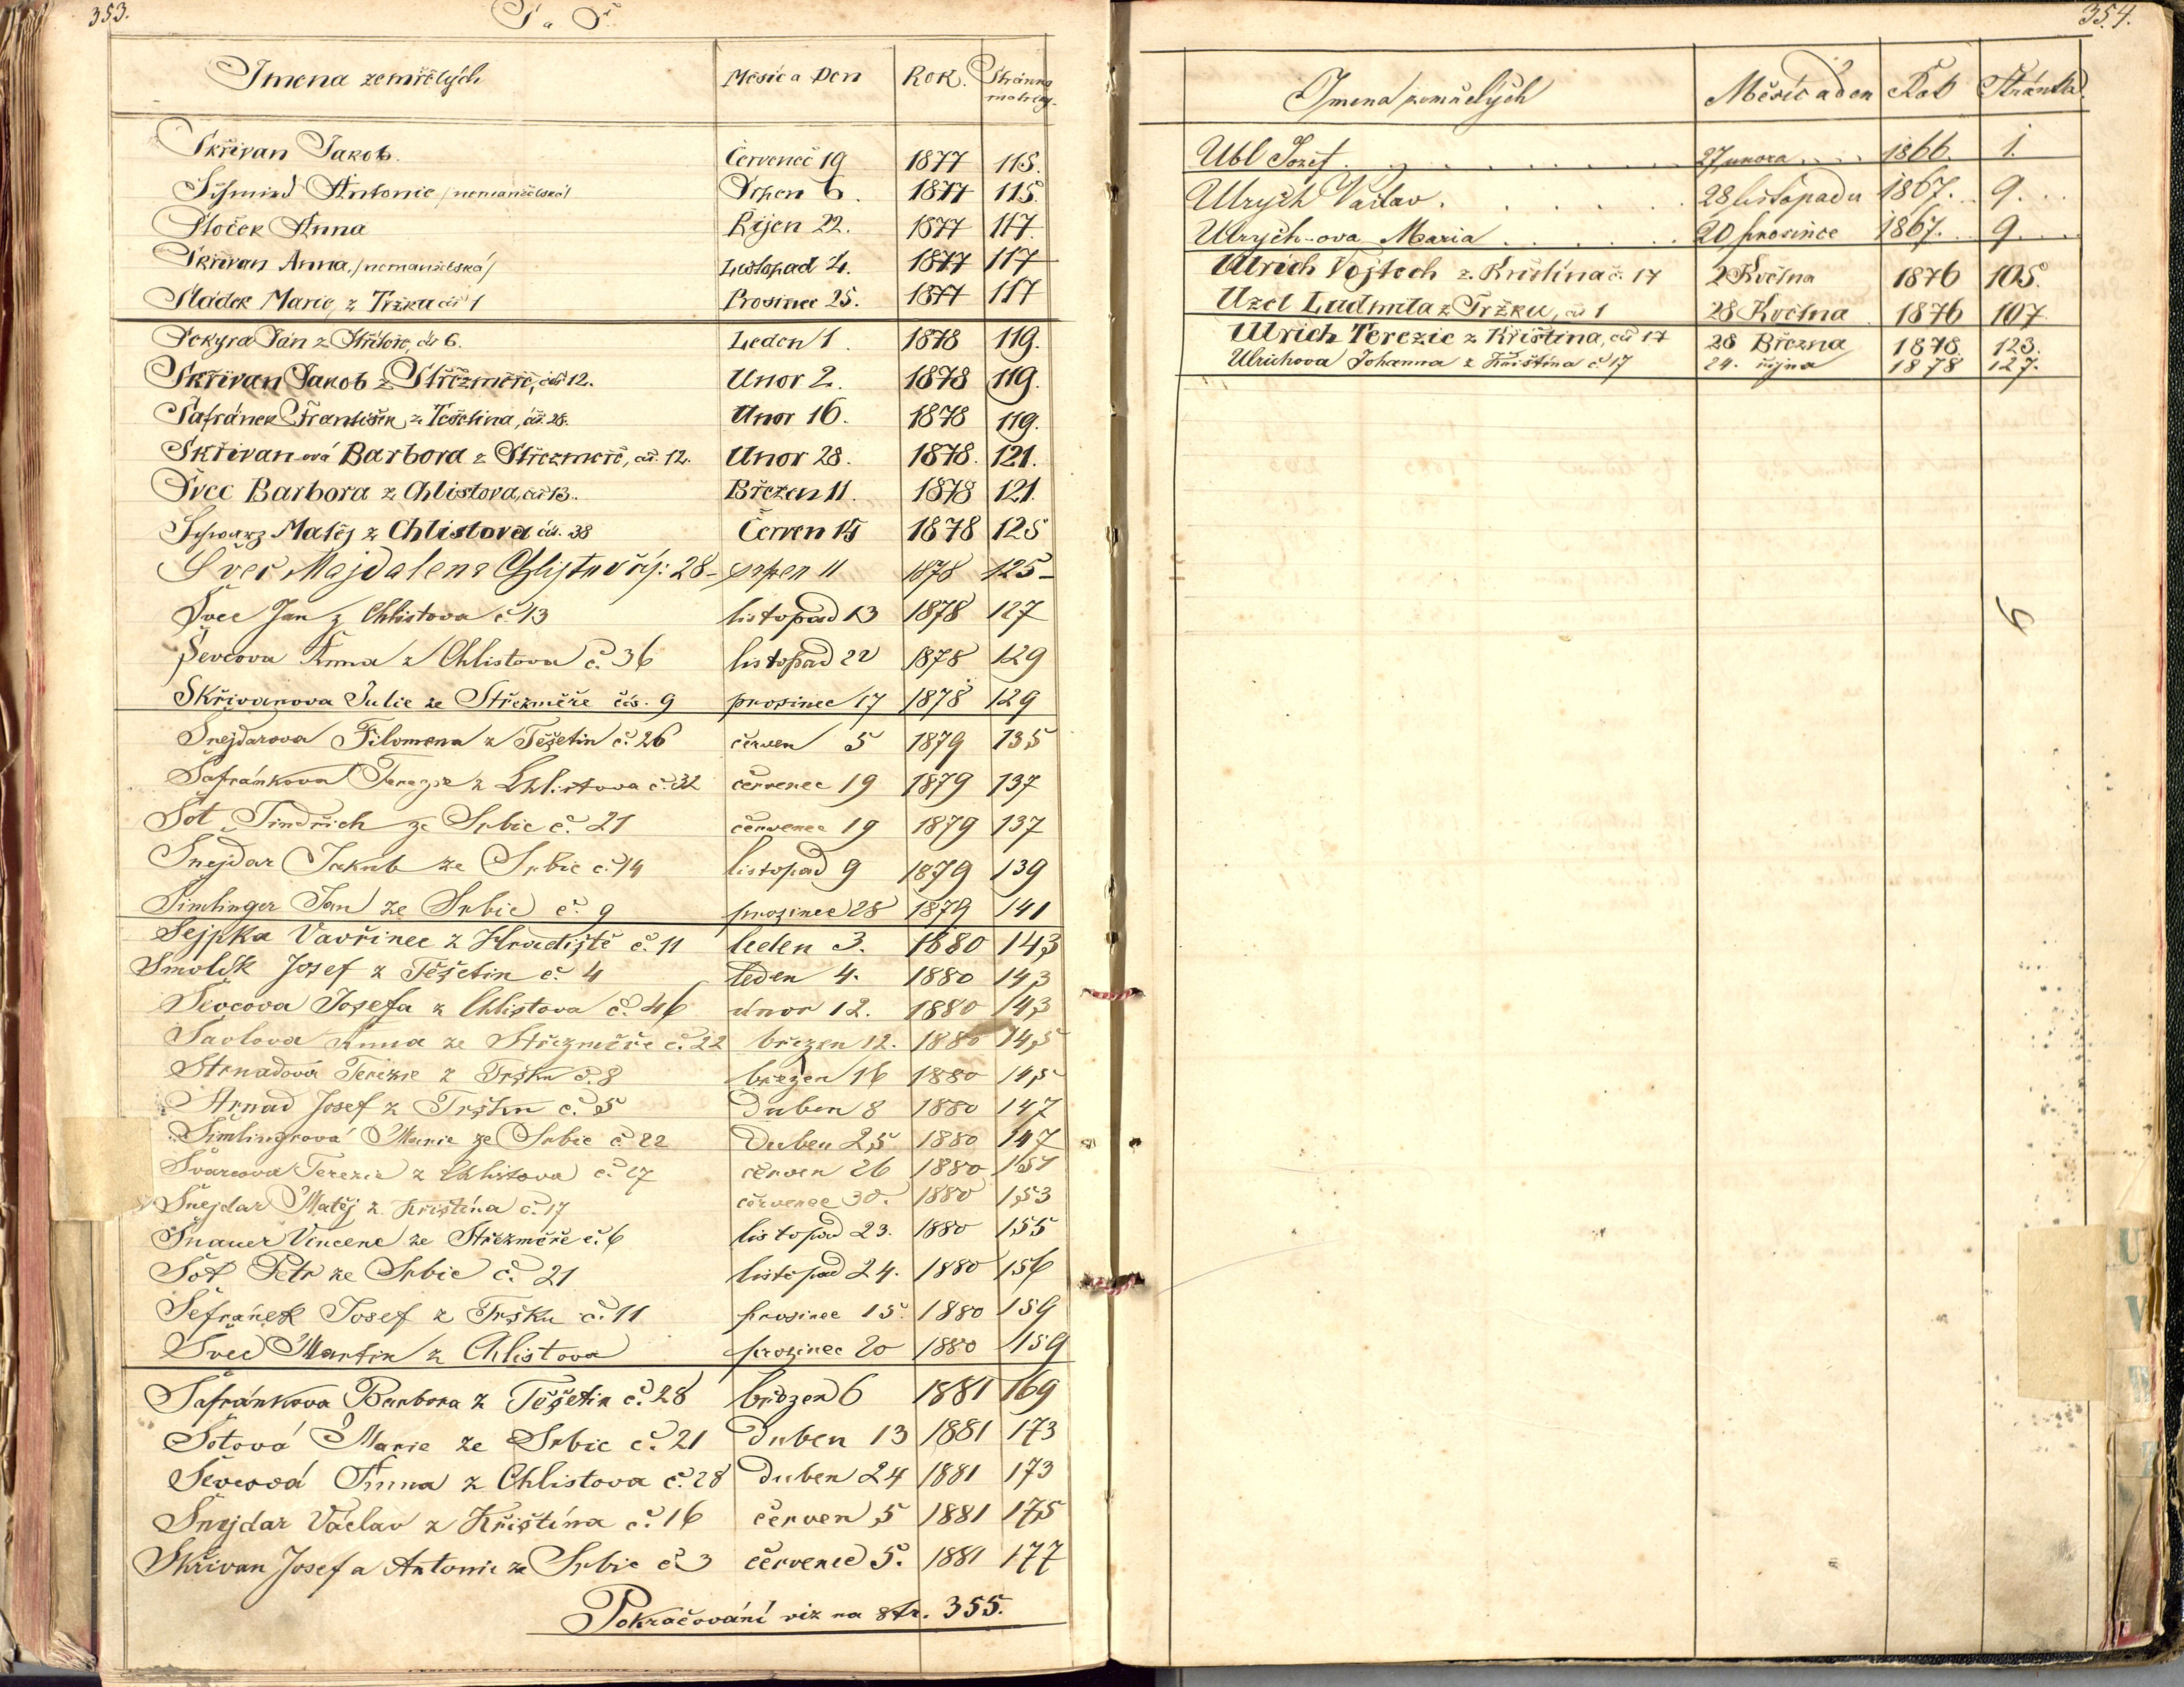 353.
S a Š
Jmena zemřelých Měsíc a Den Rok. Stránka matriky.
Skřivan Jakob. Červenec 19 1877 115.
Schmied Antonie /nemanželská/ Srpen 6. 1877 115.
Sloček Anna Říjen 22. 1877 117.
Skřivan Anna, /nemanželská/ Listopad 4. 1877 117
Sládek Marie, z Tržku čís 1 Prosinec 25. 1877 117
Sekyra Jan z čís 6. Leden 1. 1878 119.
Skřivan Jakob z Střezměře, čís 12. Unor 2. 1878 119.
Šafránek František, z Těšetina, čís. 28. Unor 16. 1878 119.
Skřivan-ová Barbora z Střezměře, čís. 12. Unor 28. 1878. 121.
Švec Barbora z Chlistova, čís 13. Březen 11. 1878 121.
Schwarz Matěj z Chlistova čís. 38 Červen 15 1878 125
Švec Majdalena Chlistov čís: 28 - srpen 11 1878 125 -
Švec Jan z Chlistova č 13 listopad 13 1878 127
Ševcova Anna z Chlistova č. 36 listopad 22 1878 129
Skřivanova Julie ze Střezměře čís. 9 prosinec 17 1878 129
Šnejdarova Filomena z Těšetin č. 26 červen 5 1879 135
Šafránkova Terezie z Chlistova č. 32 červenec 19 1879 137
Šot Jindřich ze Srbic č. 21 červenec 19 1879 137
Šnejdar Jakub ze Srbic č. 14 listopad 9 1879 139
Šimlinger Jan ze Srbic č. 9 prosinec 28 1879 141
Šejpka Vavřinec z Hradiště č. 11 leden 3. 1880 143
Smolík Josef z Těšetin č. 4 leden 4. 1880 143
Ševcova Josefa z Chlistova č. 46 únor 12. 1880 143
Šavlova Anna ze Střezměře č. 22 březen 12. 1880 145
Strnadova Terezie z Tržku č. 8 březen 16 1880 145
Strnad Josef z Tržku č. 5 Duben 8 1880 147
Šimlingrová Marie ze Srbic č 22 Duben 25 1880 147
Švarcova Terezie z Chlistova č. 17 červen 26 1880 151
Šnejdar Matěj z Křištína č. 17 červenec 30. 1880 153
Šnauer Vincenc ze Střezměře č. 6 listopad 23. 1880 155
Šot Petr ze Srbic č. 21 listopad 24. 1880 156
Šefránek Josef z Tržku č. 11 prosinec 15. 1880 159
Švec Martin z Chlistova prosinec 20 1880 159
Šafránkova Barbora z Těšetin č. 28 březen 6 1881 169
Šotová Marie ze Srbic č. 21 Duben 13 1881 173
Ševcová Anna z Chlistova č. 28 Duben 24 1881 173
Šnejdar Václav z Křištína č. 16 červen 5 1881 175
Skřivan Josef a Antonie ze Srbic č 3 červenec 5. 1881 177
Pokračování viz na str. 355.
354.
Jmena zemřelých Měsíc a den Rok Stránka.
Ubl Josef. 27 unora 1866. 1.
Ulrych Vaclav. 28 listopadu 1867. 9.
Ulrych-ova Maria 20 prosince 1867. 9.
Ulrich Vojtech z Krištína č. 17 2 Května 1876 105.
Uzel Ludmila z Tržku, čís 1 28 Května 1876 107
Ulrich Terezie z Křištína, čís 17 28 Března 1878. 123.
Ulrichova Johanna z Křištína č 17 24. října 1878 127.
U
V
W
Z